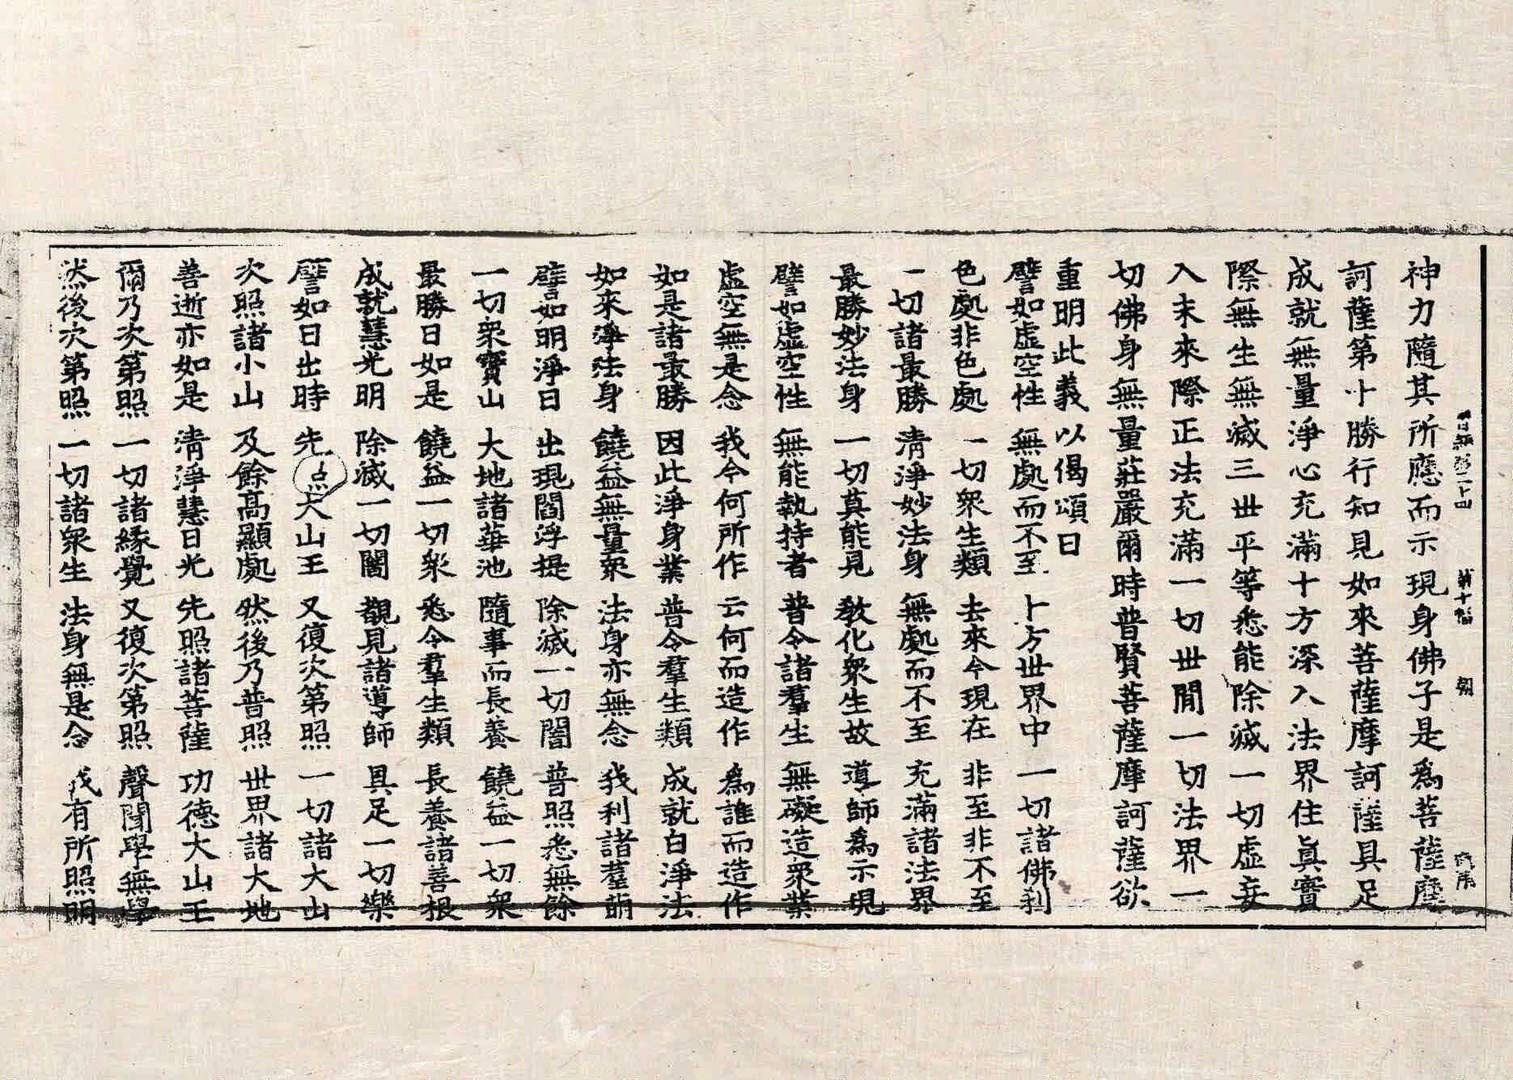 神力隨其所應而示現身佛子是爲菩薩摩
訶薩第十勝行知見如來菩薩摩訶薩具足
成就無量淨心充滿十方深入法界住眞實
際無生無滅三世平等悉能除滅一切虛妄
入未來際正法充滿一切世間一切法界一
切佛身無量莊嚴爾時普賢菩薩摩訶薩欲
重明此義以偈頌曰
譬如虛空性 無處而不至 十方世界中 一切諸佛刹
色處非色處 一切衆生類 去來今現在 非至非不至
一切諸最勝 清淨妙法身 無處而不至 充滿諸法界
最勝妙法身 一切莫能見 教化衆生故 導師爲示現
譬如虛空性 無能執持者 普令諸羣生 無礙造衆業
虛空無是念 我今何所作 云何而造作 爲誰而造作
如是諸最勝 因此淨身業 普令羣生類 成就白淨法
如來淨法身 饒益無量衆 法身亦無念 我利諸羣萌
譬如明淨日 出現閻浮提 除滅一切闇 普照悉無餘
一切衆寶山 大地諸華池 隨事而長養 饒益一切衆
最勝日如是 饒益一切衆 悉令羣生類 長養諸善根
成就慧光明 除滅一切闇 覩見諸導師 具足一切樂
譬如日出時 先点大山王 又復次第照 一切諸大山
次照諸小山 及餘高顯處 然後乃普照 世界諸大地
善逝亦如是 清淨慧日光 先照諸菩薩 功德大山王
爾乃次第照 一切諸緣覺 又復次第照 聲聞學無學
然後次第照 一切諸衆生 法身無是念 我有所照明